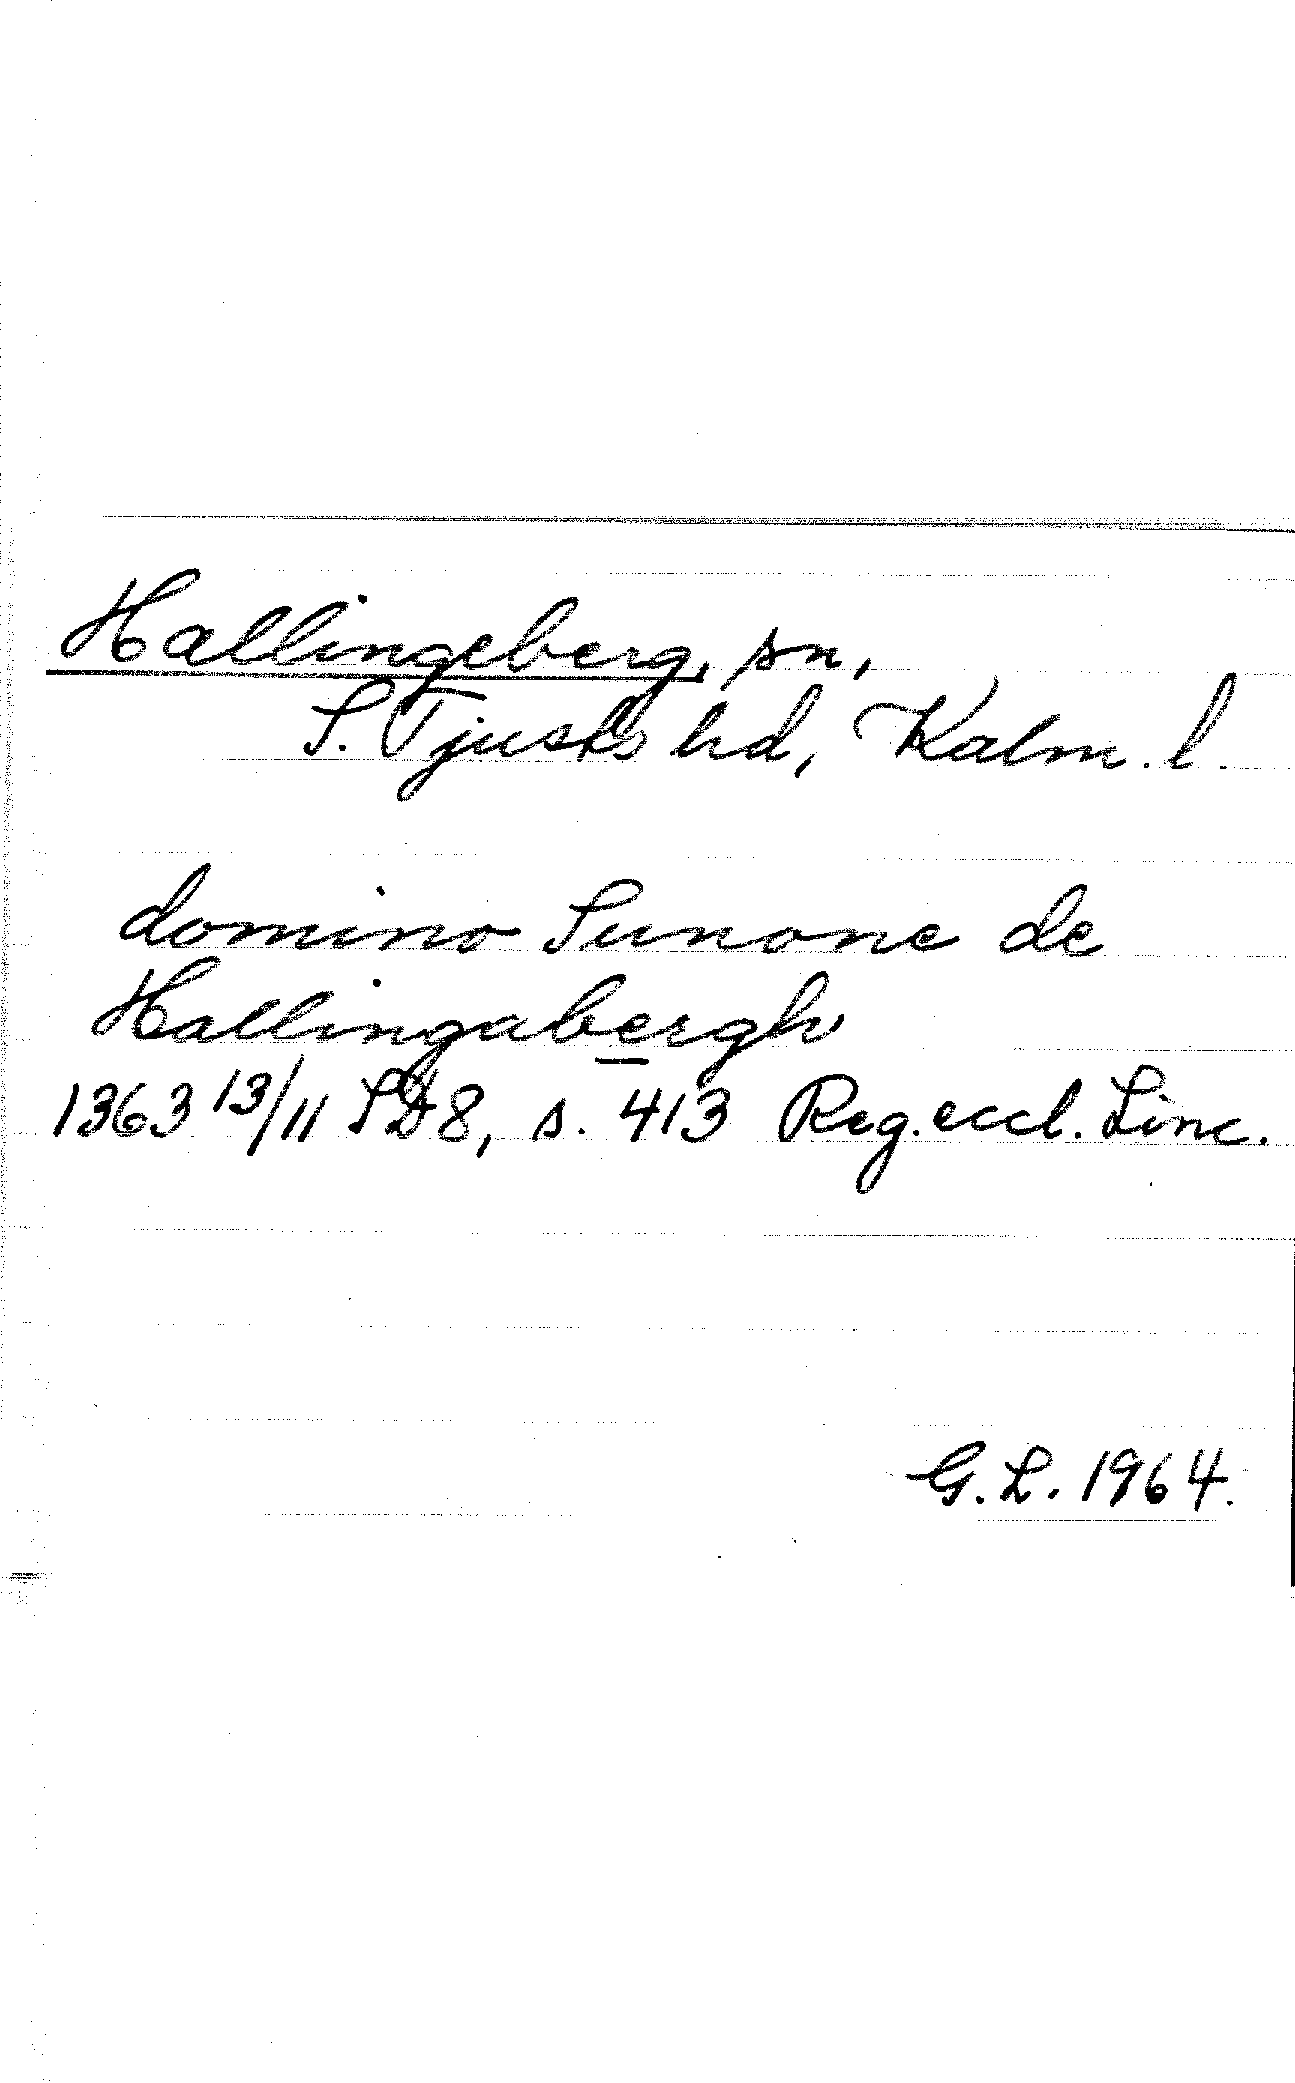 Hallingeberg, sn,
S. Tjusts hd, Kalm. l.
domino Sunone de
Hallingabergh
1363 13/11 SD 8, s. 413 Reg. eccl. Linc.
G. L. 1964.